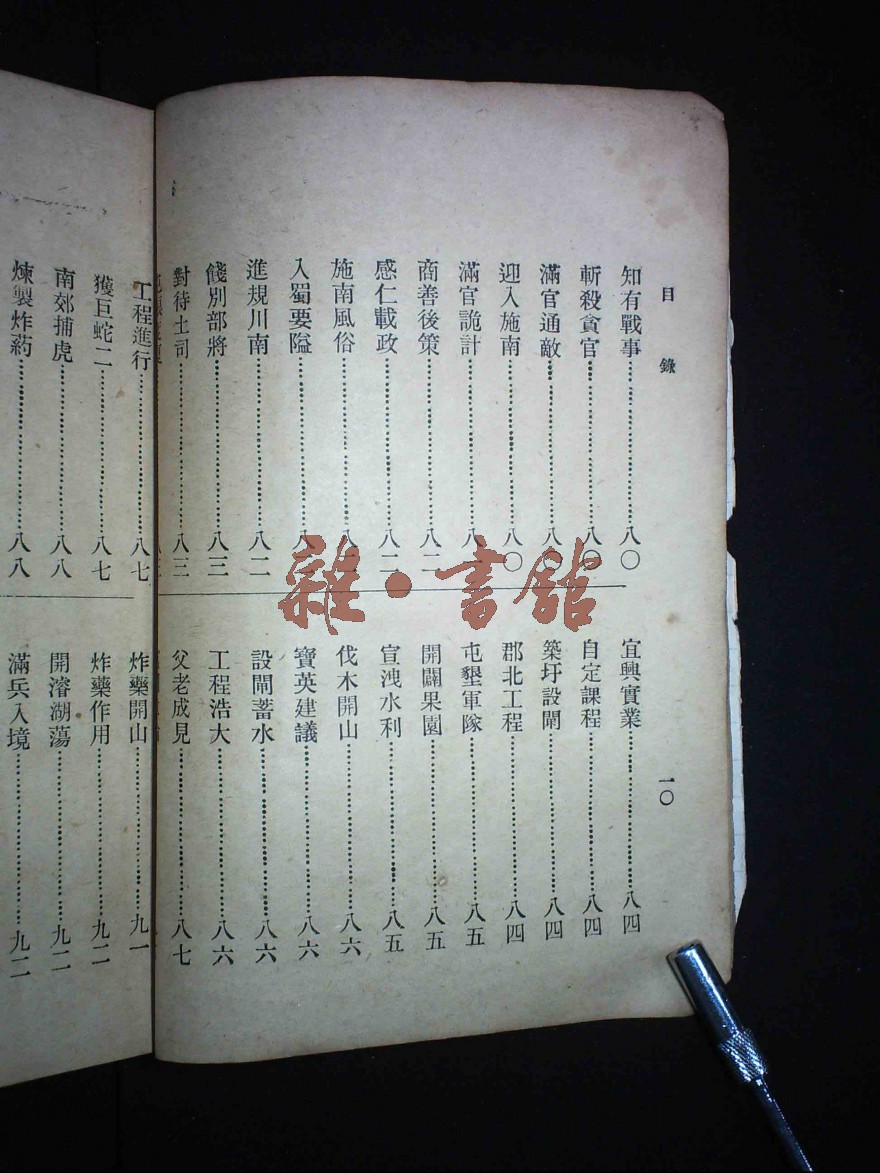 目錄
知有戰事……八〇
斬殺貪官……八〇
滿官通敵……八〇
迎入施南……八〇
滿官詭計……八
商善後策……八二
感仁載政……八二
施南風俗……八二
入蜀要隘……八二
進規川南……八二
餞別部將……八三
對待土司……八三
宜興實業……八四
自定課程……八四
築圩設閘……八四
郡北工程……八四
屯墾軍隊……八五
開闢果園……八五
宣洩水利……八五
伐木開山……八六
寶英建議……八六
設閘蓄水……八六
工程浩大……八六
父老成見……八七
一〇
工程進行……八七
獲巨蛇二……八七
南郊捕虎……八八
煉製炸葯……八八
炸藥開山……九一
炸藥作用……九二
開濬湖蕩……九二
滿兵入境……九二
雜·書館